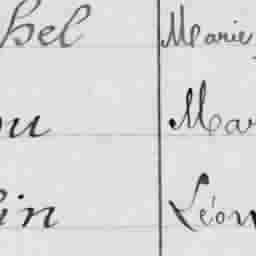 hel Marie
ou Mar
in Léon